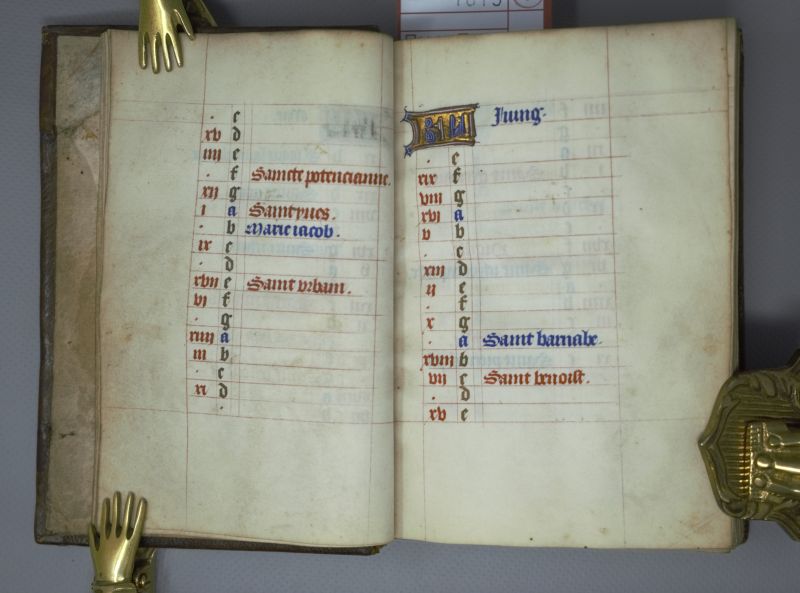 . c
xv d
iiii e
. f Sancte potencianne.
xii g
i a Saint yues.
. b Marie iacob.
ix c
. d
xvii e Saint vrbain.
vi f
. g
xiiii a
iii b
. c
xi d
.
KL Iuing.
. e
xix f
viii g
xvi a
v b
. c
xiii d
ii e
. f
x g
. a Saint barnabe.
xviii b
vii c Saint benoist.
. d
xv e